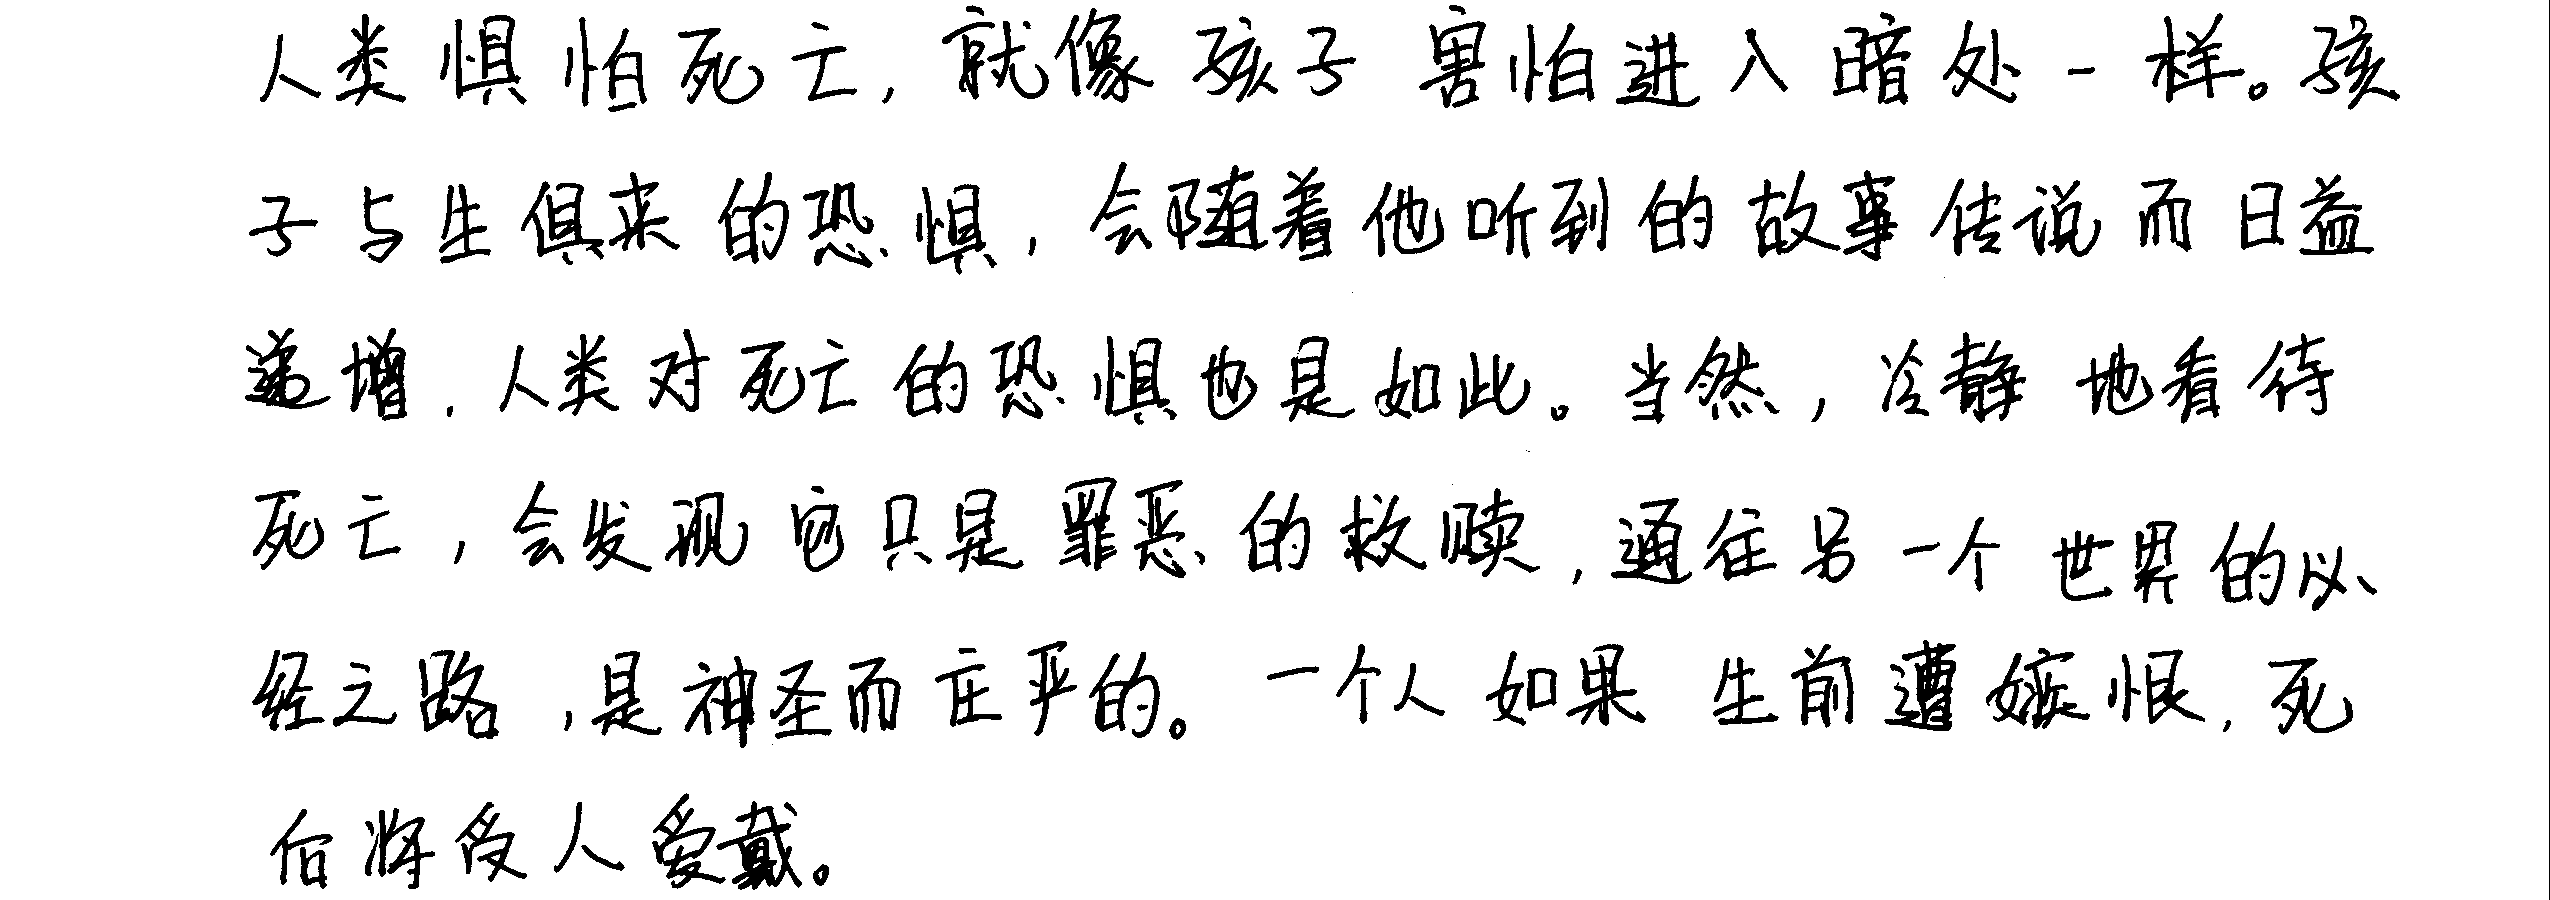 人类惧怕死亡，就像孩子害怕进入暗处一样。孩
子与生俱来的恐惧，会随着他听到的故事传说而日益
递增，人类对死亡的恐惧也是如此。当然，冷静地看待
死亡，会发现它只是罪恶的救赎，通往另一个世界的必
经之路，是神圣而庄严的。一个人如果生前遭嫉恨，死
后将受人爱戴。